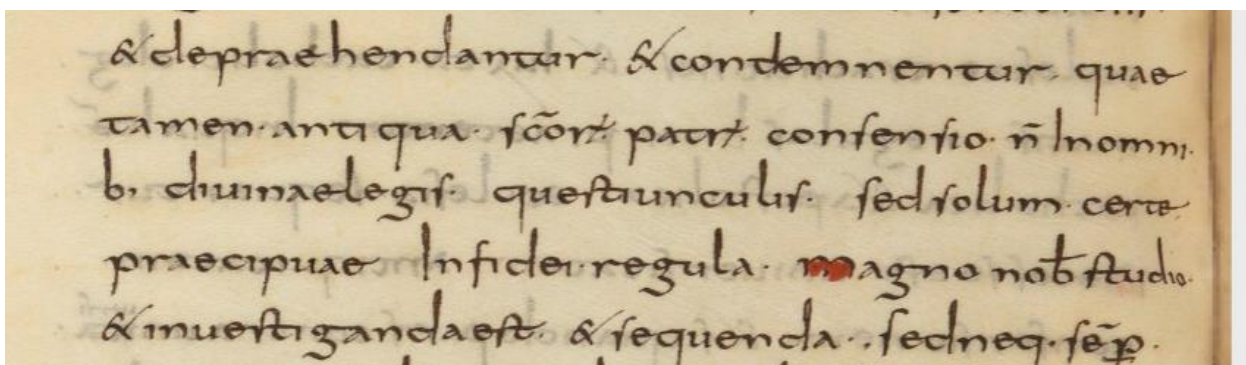 & deprae hendantur · & condemnentur · quae
tamen · antiqua · sc̄oꝝ patꝝ consensio · n̄ In omni
b; divinae legis · questiunculis · sed solum · certe
praecipuae In fidei · regula · magno nob̄ studio ·
& investiganda est · & sequenda · · sed neq · sēꝑ ·